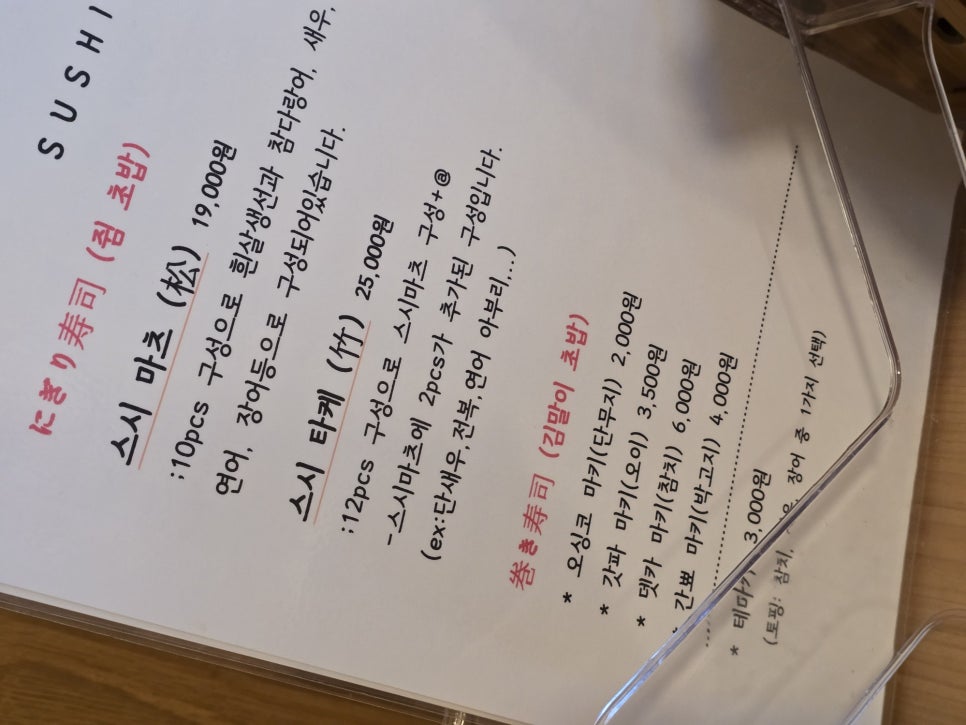 SUSHI
にぎり寿司 (쥠 초밥)
스시 마츠 (松) 19,000원
:10pcs 구성으로 흰살생선과 참다랑어, 새우,
연어, 장어등으로 구성되어있습니다.
스시 타케 (竹) 25,000원
:12pcs 구성으로 스시마츠 구성+@
-스시마츠에 2pcs가 추가된 구성입니다.
(ex:단새우,전복,연어 아부리,..)
巻き寿司 (김말이 초밥)
* 오싱코 마키(단무지) 2,000원
* 갓파 마키(오이) 3,500원
* 뎃카 마키(참치) 6,000원
* 간뾰 마키(박고지) 4,000원
* 테마키 3,000원
(토핑: 참치, 장어 중 1가지 선택)